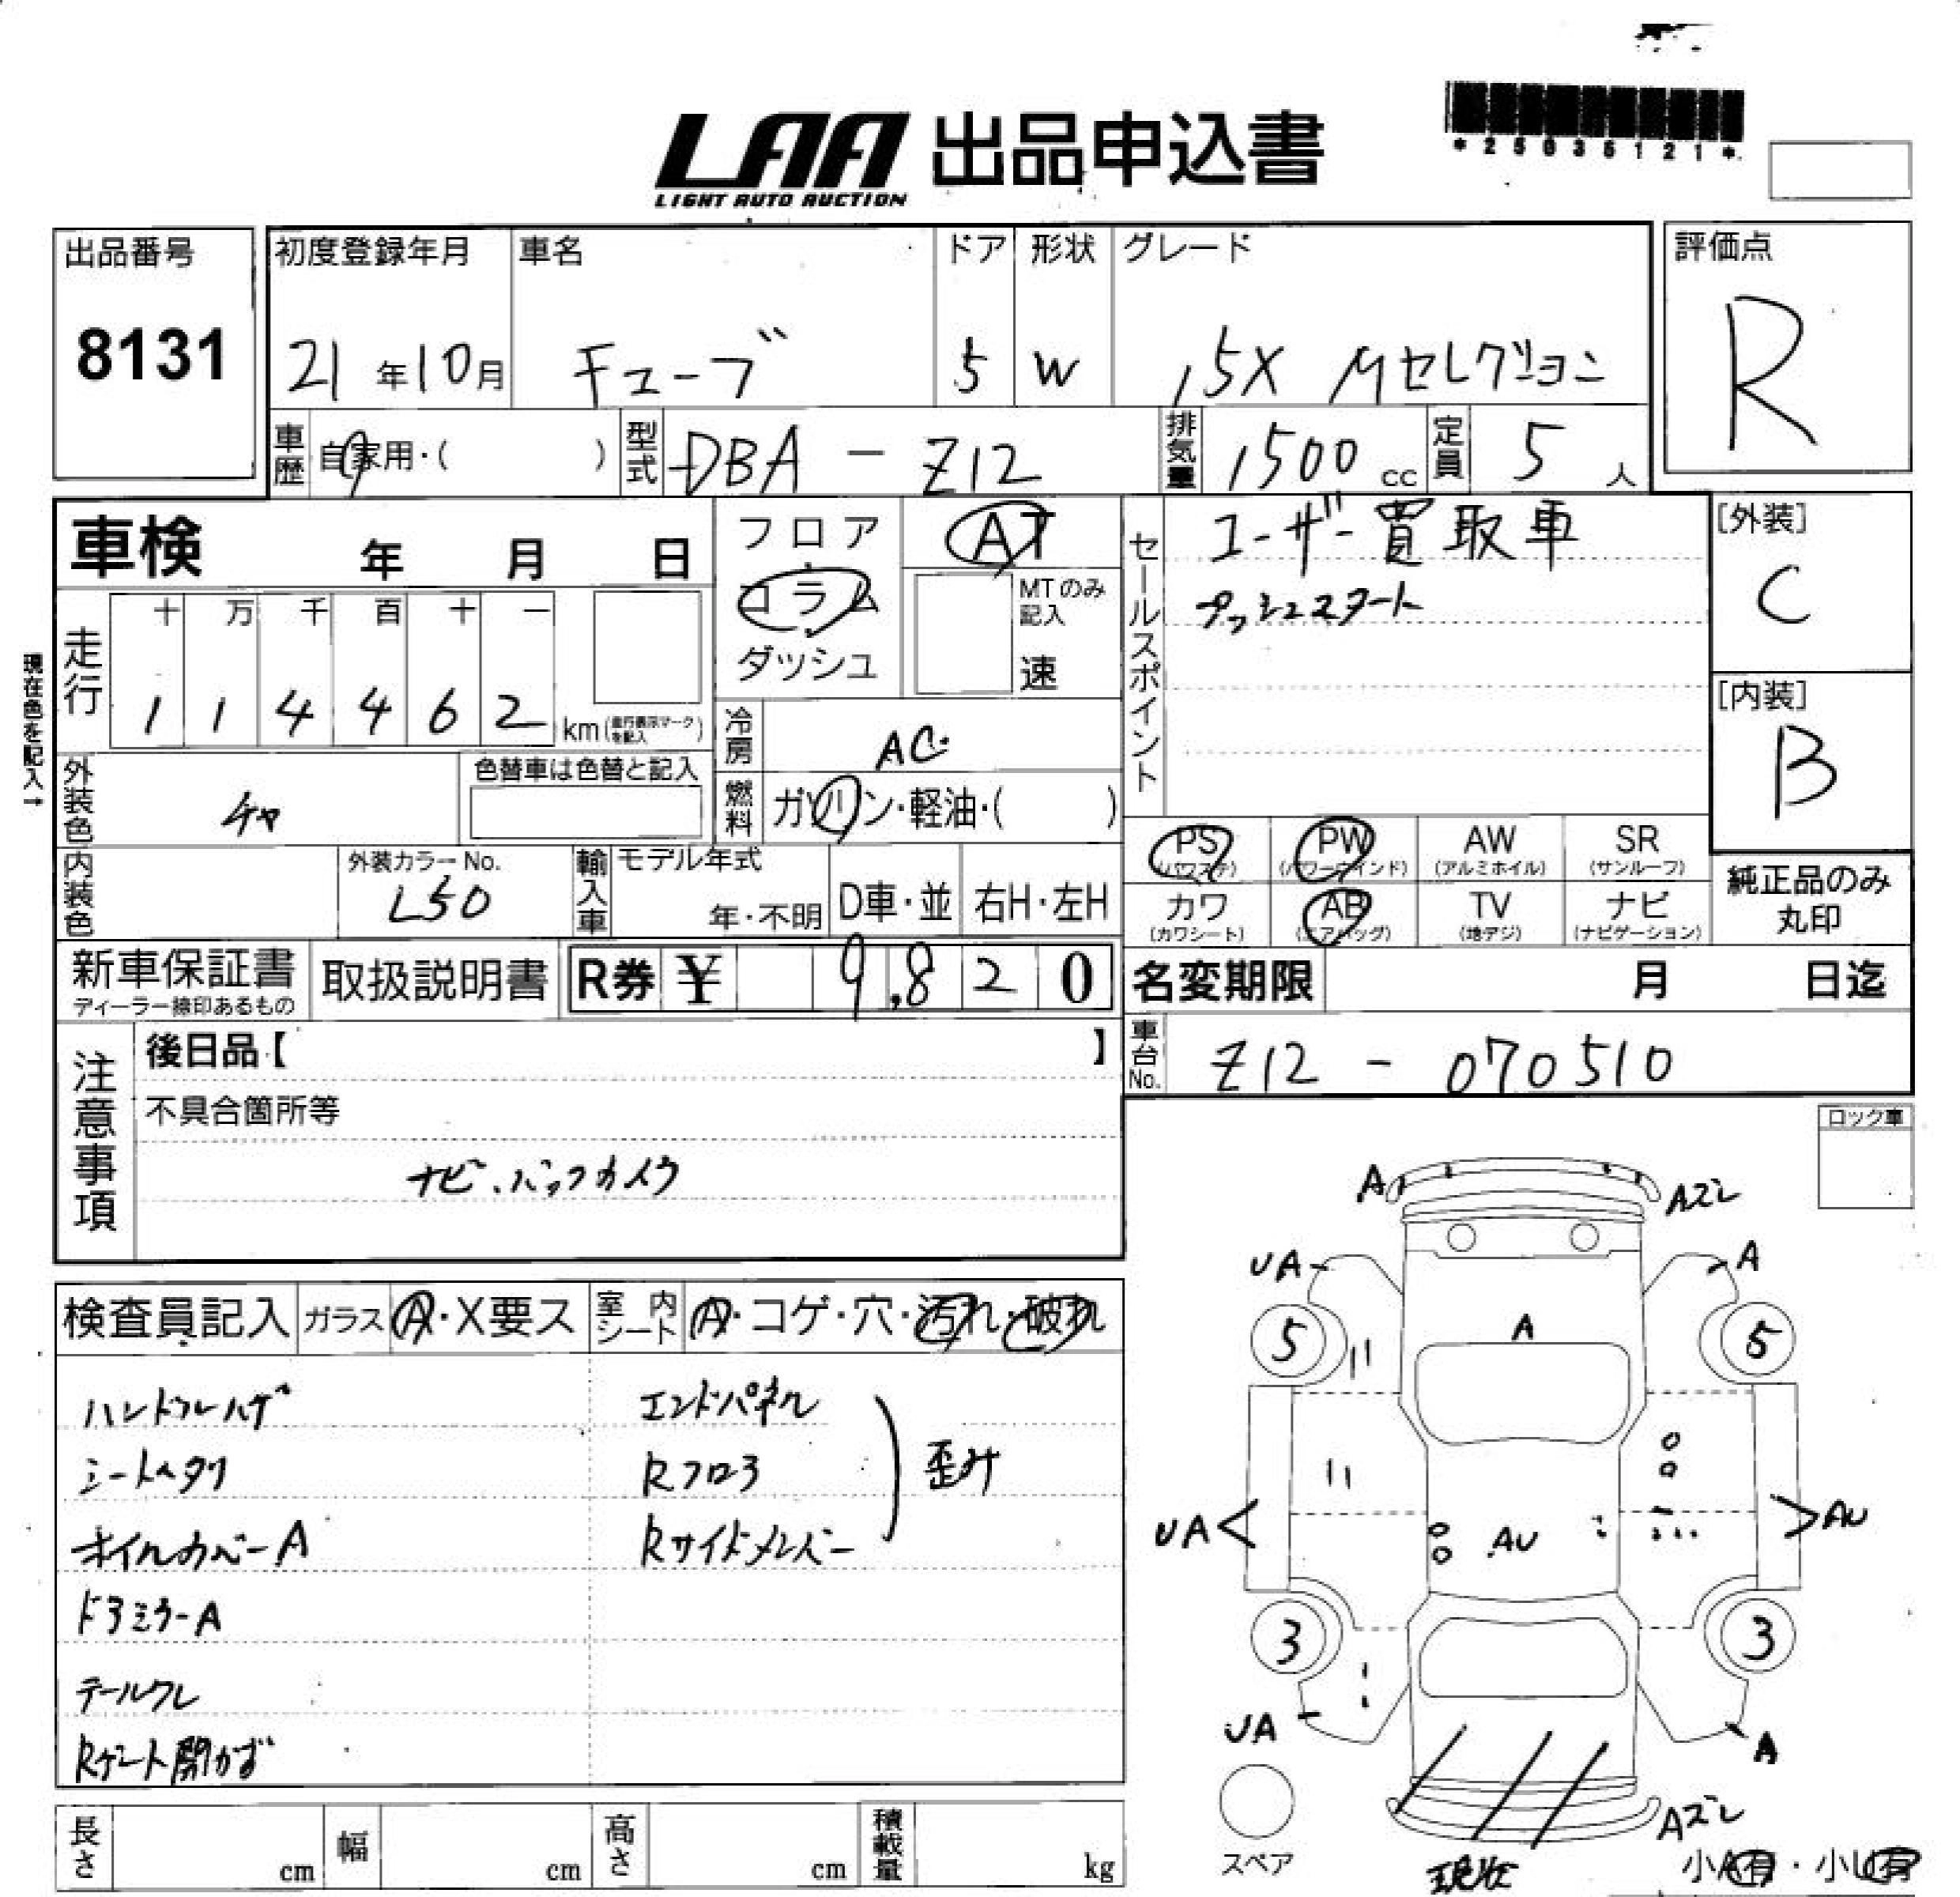 LAA 出品申込書
LIGHT AUTO AUCTION
*25036121*
出品番号
8131
初度登録年月
21年10月
車名
キューブ
ドア
5
形状
W
グレード
15X Mセレクション
評価点
R
車歴
自家用・( )
型式
DBA - Z12
排気量
1500cc
定員
5人
車検 年 月 日
現在色を記入→
走行
十 万 千 百 十 一
1 1 4 4 6 2 km(走行表示マークを記入)
フロア
コラム
ダッシュ
AT
MTのみ記入
速
冷房
AC
燃料
ガソリン・軽油・( )
外装色
チャ
色替車は色替と記入
内装色
外装カラーNo.
L50
輸入車
モデル年式
年・不明
D車・並
右H・左H
セールスポイント
ユーザー買取車
プッシュスタート
[外装]
C
[内装]
B
PS
(パワステ)
PW
(パワーウインド)
AW
(アルミホイル)
SR
(サンルーフ)
カワ
(カワシート)
AB
(エアバッグ)
TV
(地デジ)
ナビ
(ナビゲーション)
純正品のみ
丸印
新車保証書
ディーラー捺印あるもの
取扱説明書
R券 ¥ 9,820
名変期限 月 日迄
車台No.
Z12 - 070510
注意事項
後日品【 】
不具合箇所等
ナビ、バックカメラ
ロック車
検査員記入
ガラス A・X要ス
室内シート A・コゲ・穴・汚れ・破れ
ハンドルハゲ
シートヘタリ
ホイルカバーA
ドアミラーA
テールワレ
Rゲート開かず
エンドパネル
Rフロア
Rサイドメンバー
歪み
A
Aズレ
UA
A
5
A
5
UA
AU
AU
3
3
UA
A
Aズレ
スペア
現状
小A有・小U有
長さ cm
幅 cm
高さ cm
積載量 kg